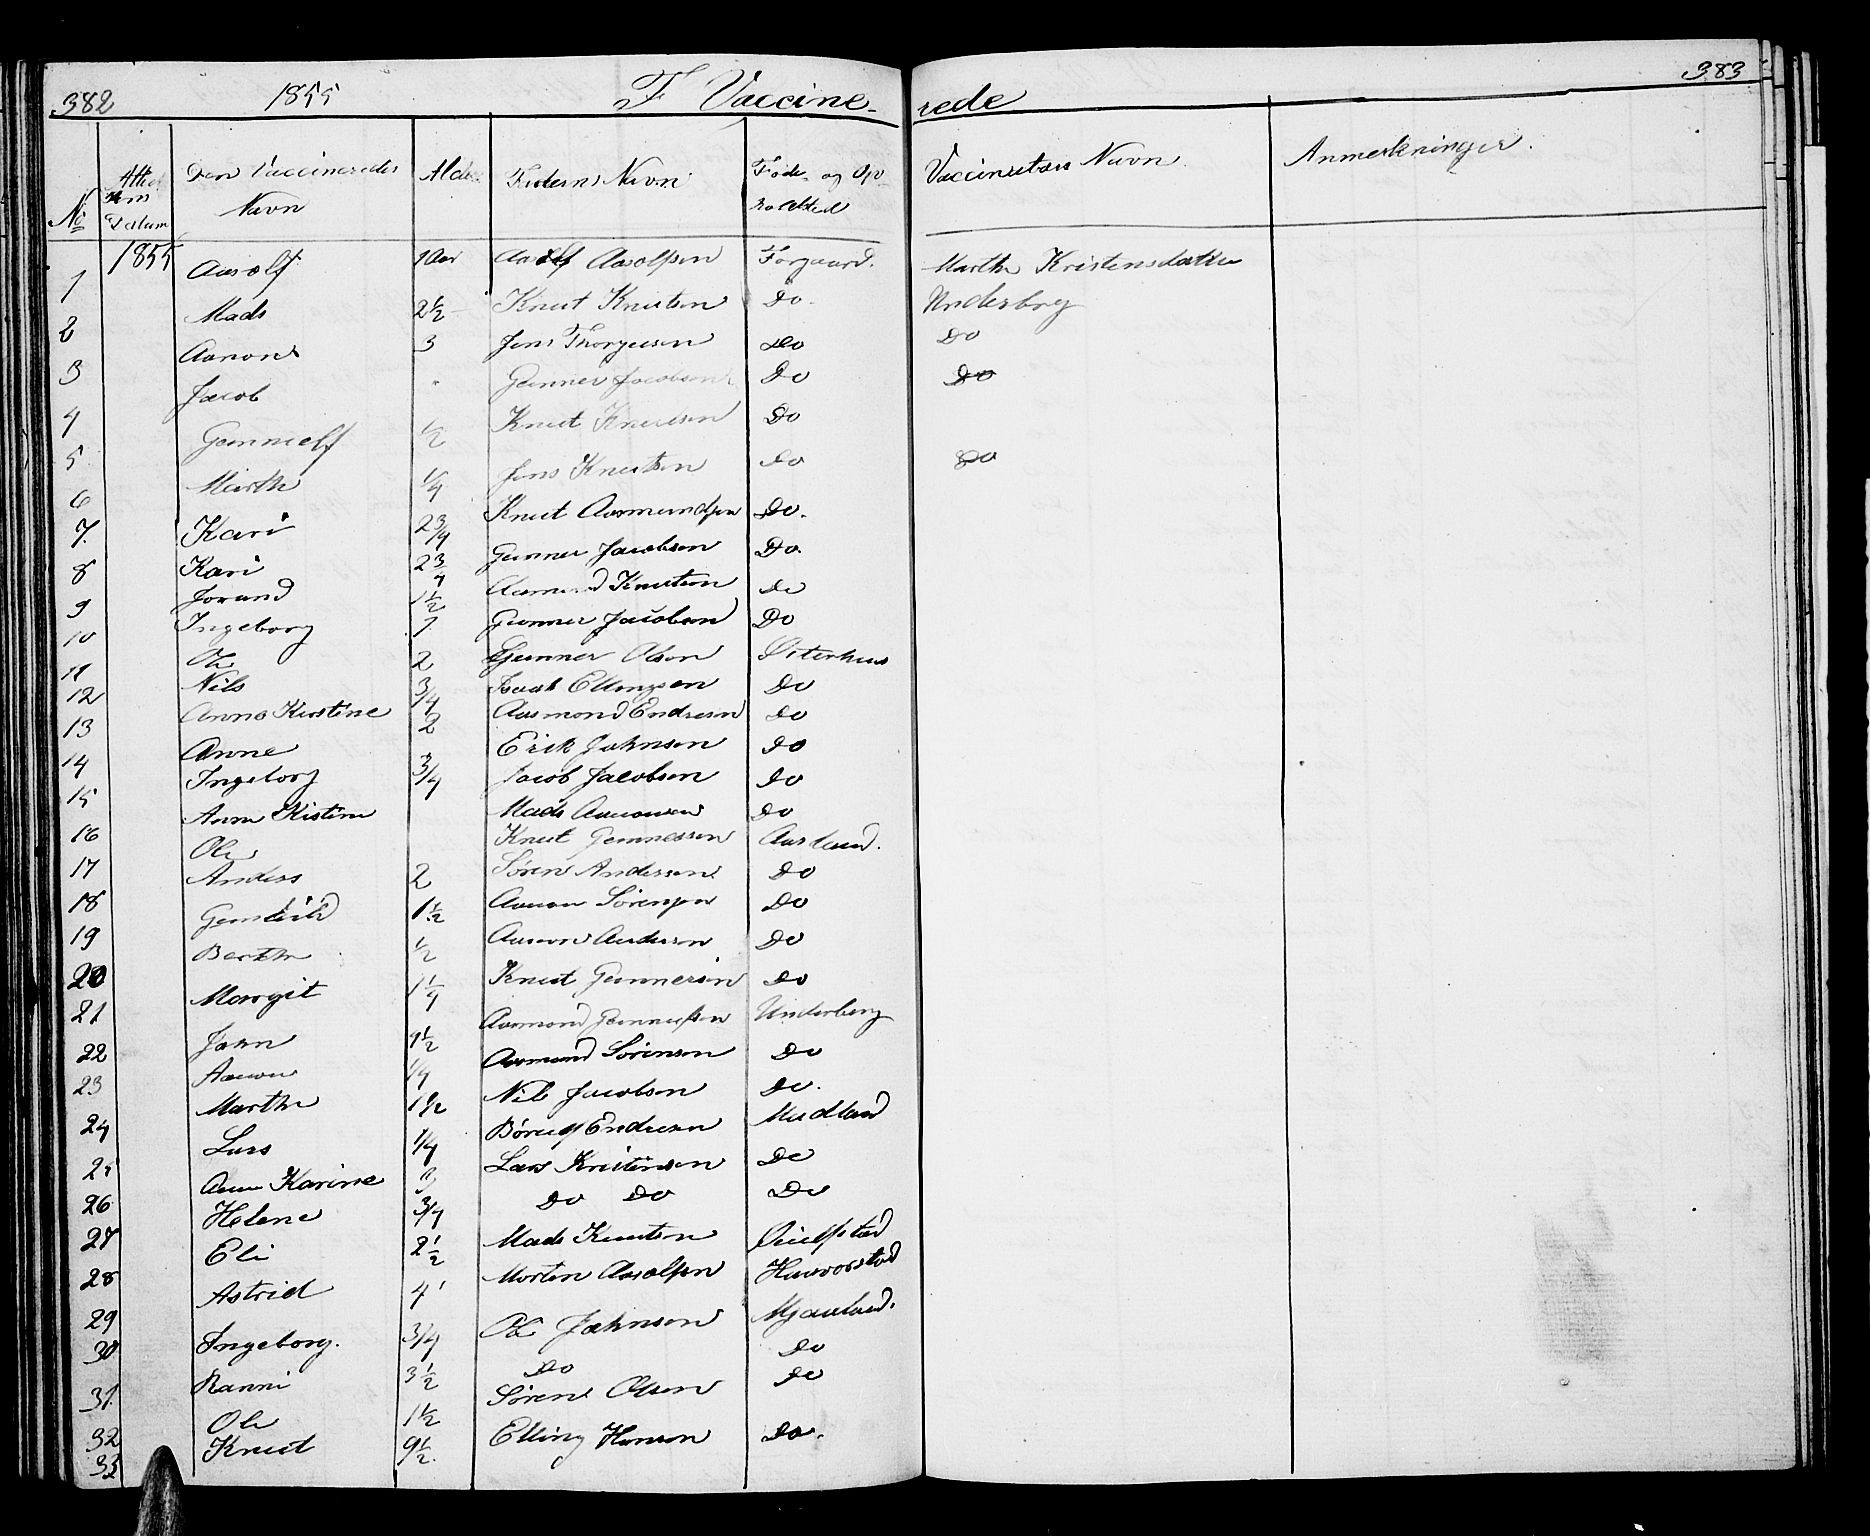 382 1855 F Vaccine- rede 383
No Attestens Datum Den Vaccineredes Navn Alder Faderens Navn Føde- og Op Vaccinateurs Navn Anmerkninger.
1 1855 Aasolf 1 Aar Aasolf Aasolfsen Forgaard. Marthe Kristensdatter
2 Mads 2 1/2 Knut Knutsen Do. Underberg
3 Aanon 3 Jens Do Do
4 Jacob " Gunner Jacobsen Do Do
5 Gunnuelf 1/2 Knut Knutsen Do
6 Marthe 1/4 Jens Knutsen Do Do
7. Kari 2 3/4 Knut Aasmundsen Do.
8 Kari 2 3/4 Gunner Jacobsen Do.
9 Jorand 1 1/2 Aasmund Knutsen Do
10 Ingeborg 1 Gunner Jacobsen Do
11 Ole 2 Gunner Olsen Østerhus
12 Nils 3/4 Isaak Ellingsen Do
13 Anne Kirstine 2 Aasmond Endresen Do
14 Anne Erik Johnsen Do
15 Ingeborg 3/4 Jacob Jacobsen Do
16 Anne Kistine Mads Aanonsen Do
17 Ole Knut Gunnersen Aasland.
18 Anders 2 Søren Andersen Do
19 Gunhild 1 1/2 Aanon Sørensen Do
20 Berthe 1/2 Aanon Andersen Do
21 Margit 1 1/4 Knut Gunnersen Do
22 John 9 1/2 Aasmond Underberg
23 Aanon 1/4 Aasmund Sørensen Do
24 Marthe 1 1/2 Nils Jacobsen Do.
25 Lars 1/4 Endresen Mudland
26 Anne Karine 3 Lars Kristensen Do
27 Helene 3/4 Do Do Do
28 Eli 2 1/2 Mads Knutsen
29 Astrid 4 Morten Aasolfsen
30 Ingeborg. 3/4 Ole Johnsen Mjaaland.
31. Ranni 3 1/2 Do Do
32 Ole 1 1/2 Søren Olsen Do
33 Knut 9 1/2. Elling Hansen Do.